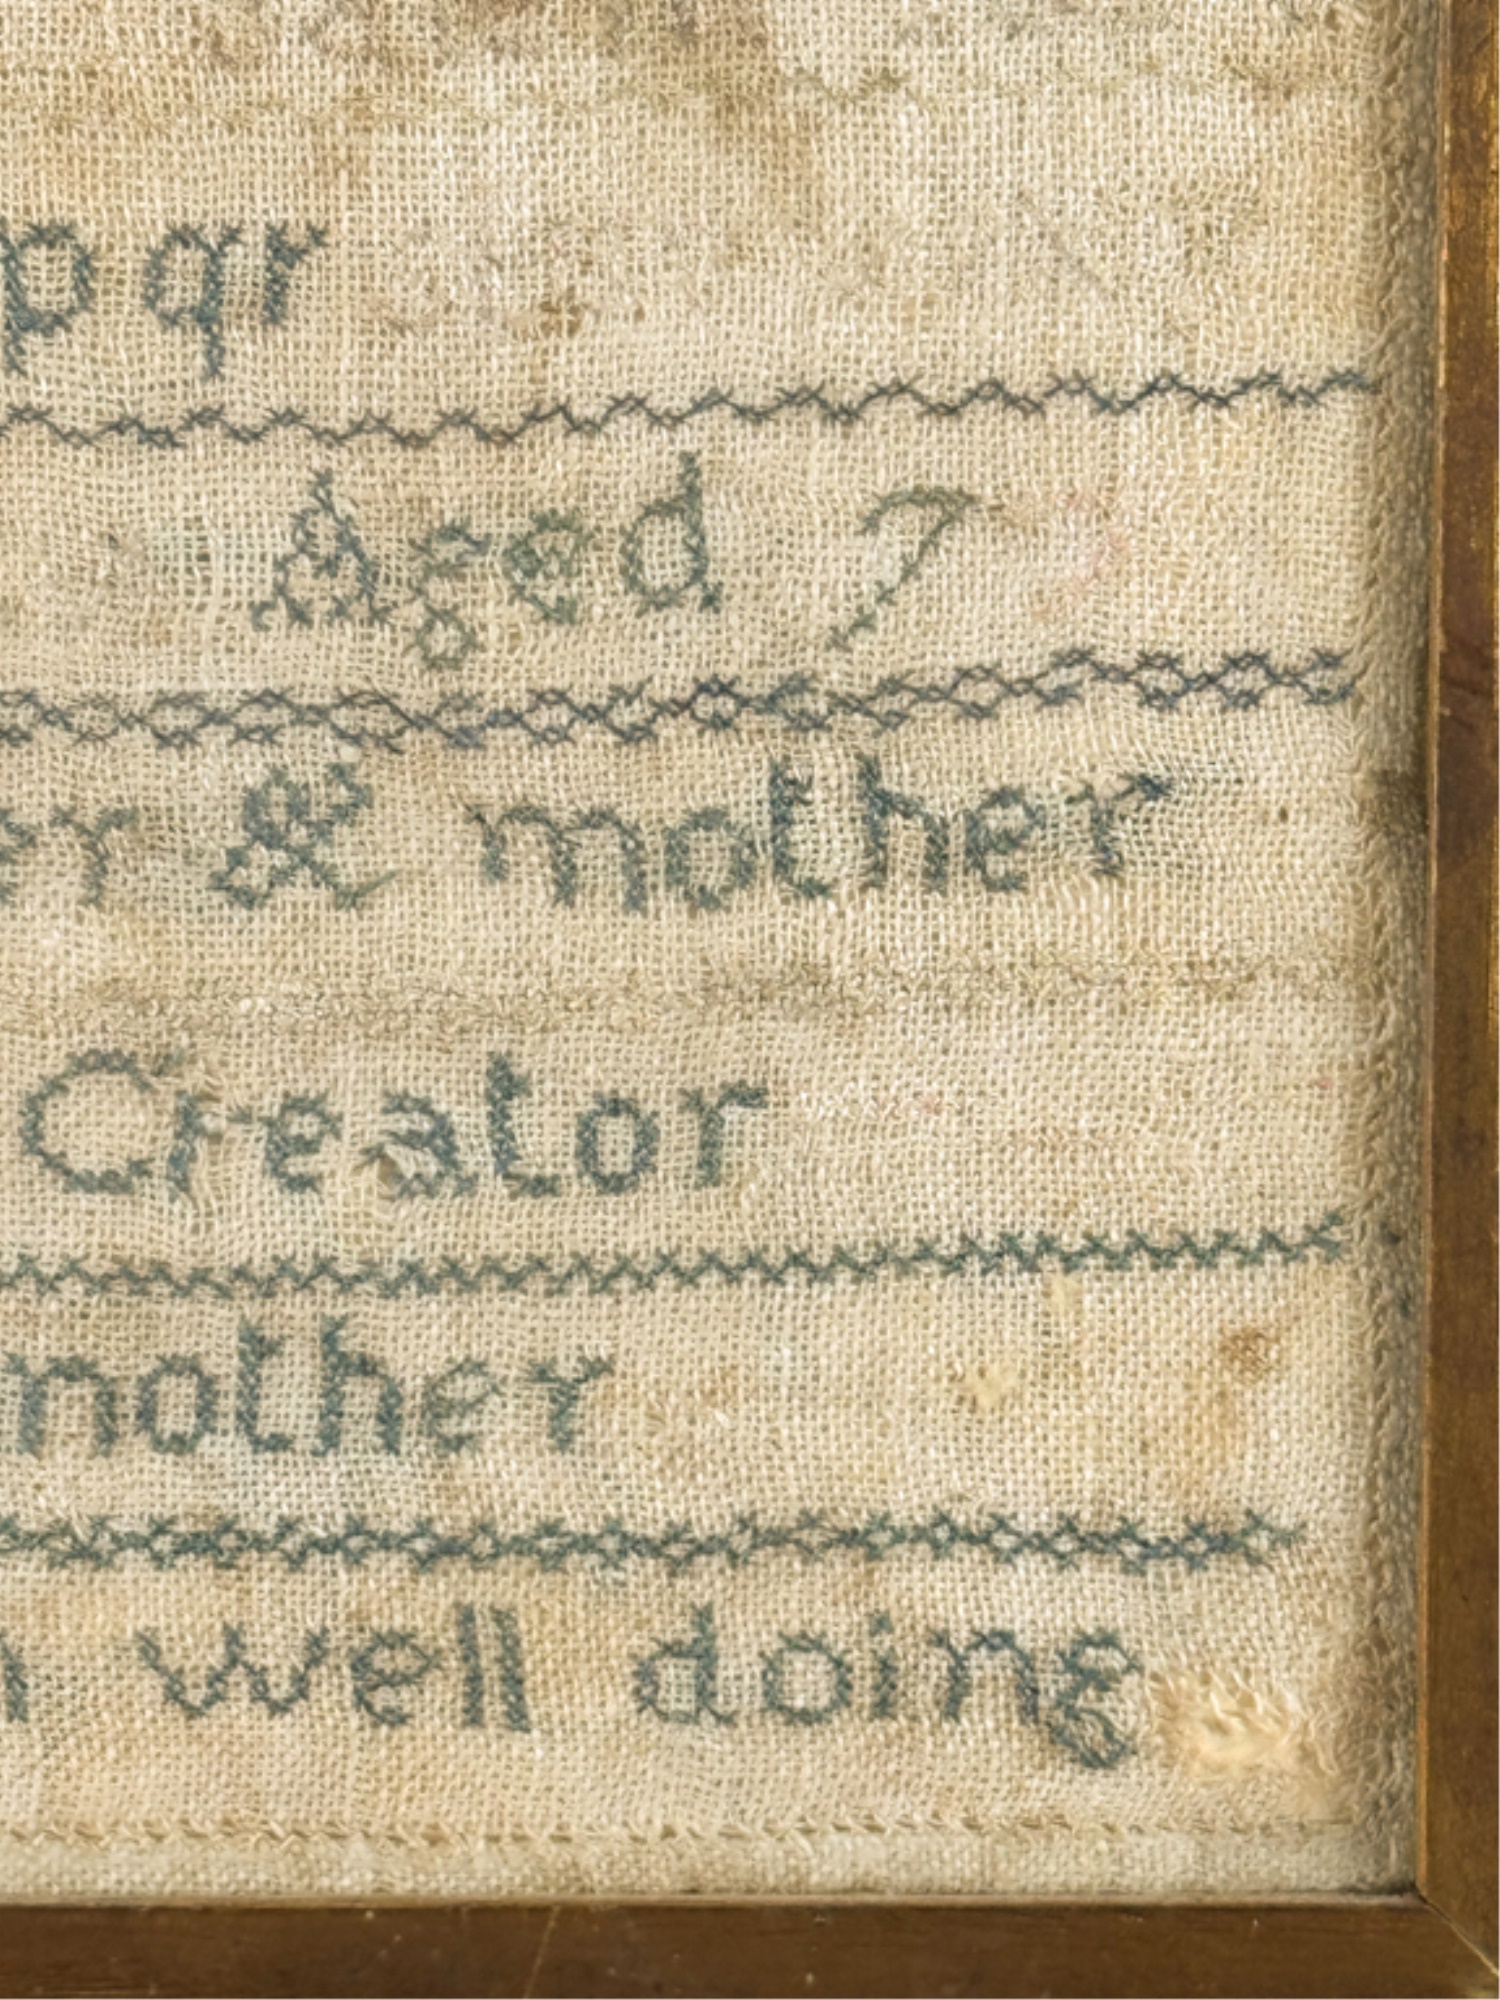 pqr
Aged 7
er & mother
Creator
mother
n well doing